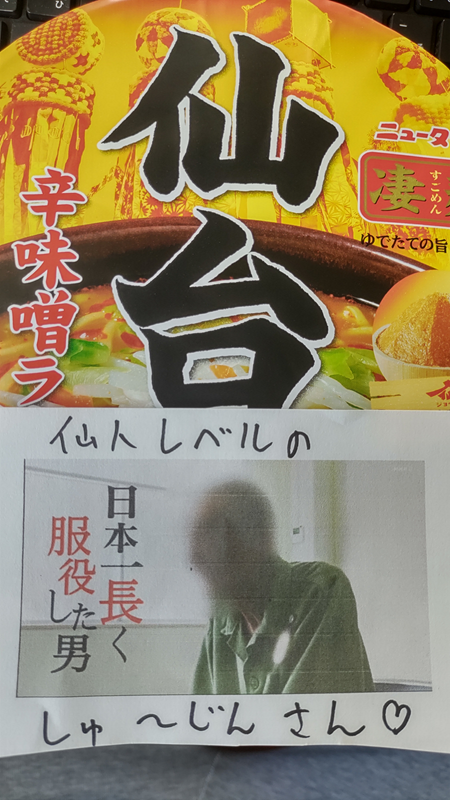 仙台
辛味噌ラ
ニュータ
凄
すごめん
ゆでたての旨
仙人レベルの
日本一長く
服役した男
しゅ〜じんさん♡